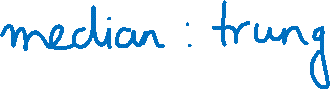 median : trung